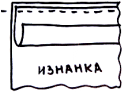 ИЗНАНКА